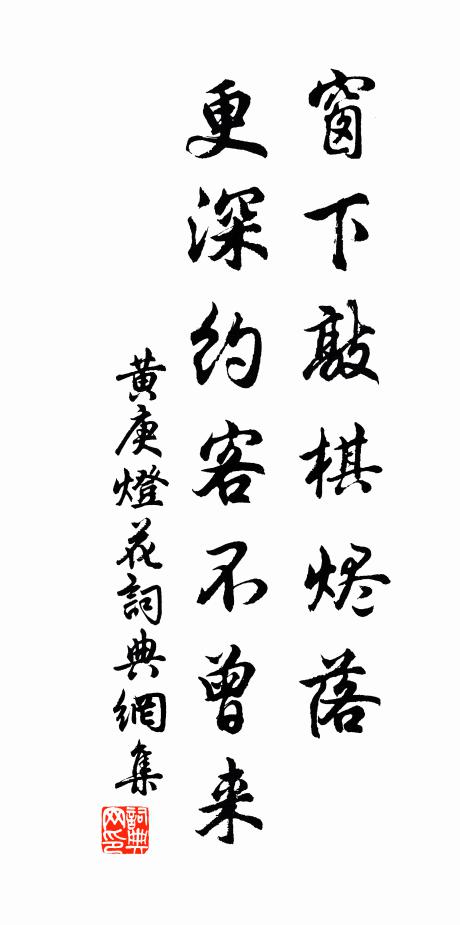 窗下敲棋烬落
更深约客不曾来
黄庚燈花詞典網集
詞典網印